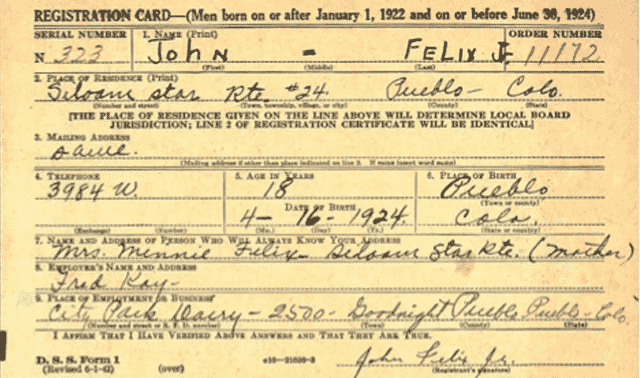 REGISTRATION CARD—(Men born on or after January 1, 1922 and on or before June 30, 1924)
SERIAL NUMBER 1. NAME (Print) ORDER NUMBER
N 323 JOHN - FELIX Jr. 11172
(First) (Middle) (Last)
2. PLACE OF RESIDENCE (Print)
Siloam Star Rte. #24. Pueblo - Colo.
(Number and street) (Town, township, village, or city) (County) (State)
[THE PLACE OF RESIDENCE GIVEN ON THE LINE ABOVE WILL DETERMINE LOCAL BOARD
JURISDICTION; LINE 2 OF REGISTRATION CERTIFICATE WILL BE IDENTICAL]
3. MAILING ADDRESS
Same.
(Mailing address if other than place indicated on line 2. If same insert word same)
4. TELEPHONE 5. AGE IN YEARS 6. PLACE OF BIRTH
3984 W. 18 Pueblo
(Town or county)
DATE OF BIRTH
4- 16- 1924. Colo.
(Exchange) (Number) (Mo.) (Day) (Yr.) (State or country)
7. NAME AND ADDRESS OF PERSON WHO WILL ALWAYS KNOW YOUR ADDRESS
Mrs. Minnie Felix- Siloam Star Rte. (Mother)
8. EMPLOYER'S NAME AND ADDRESS
Fred Kay-
9. PLACE OF EMPLOYMENT OR BUSINESS
City Park Dairy - 2500 - Goodnight Pueblo Pueblo - Colo.
(Number and street or R. F. D. number) (Town) (County) (State)
I AFFIRM THAT I HAVE VERIFIED ABOVE ANSWERS AND THAT THEY ARE TRUE.
D. S. S. Form 1
(Revised 6-1-42) (over) 16-21630-2 John Felix Jr.
(Registrant's signature)